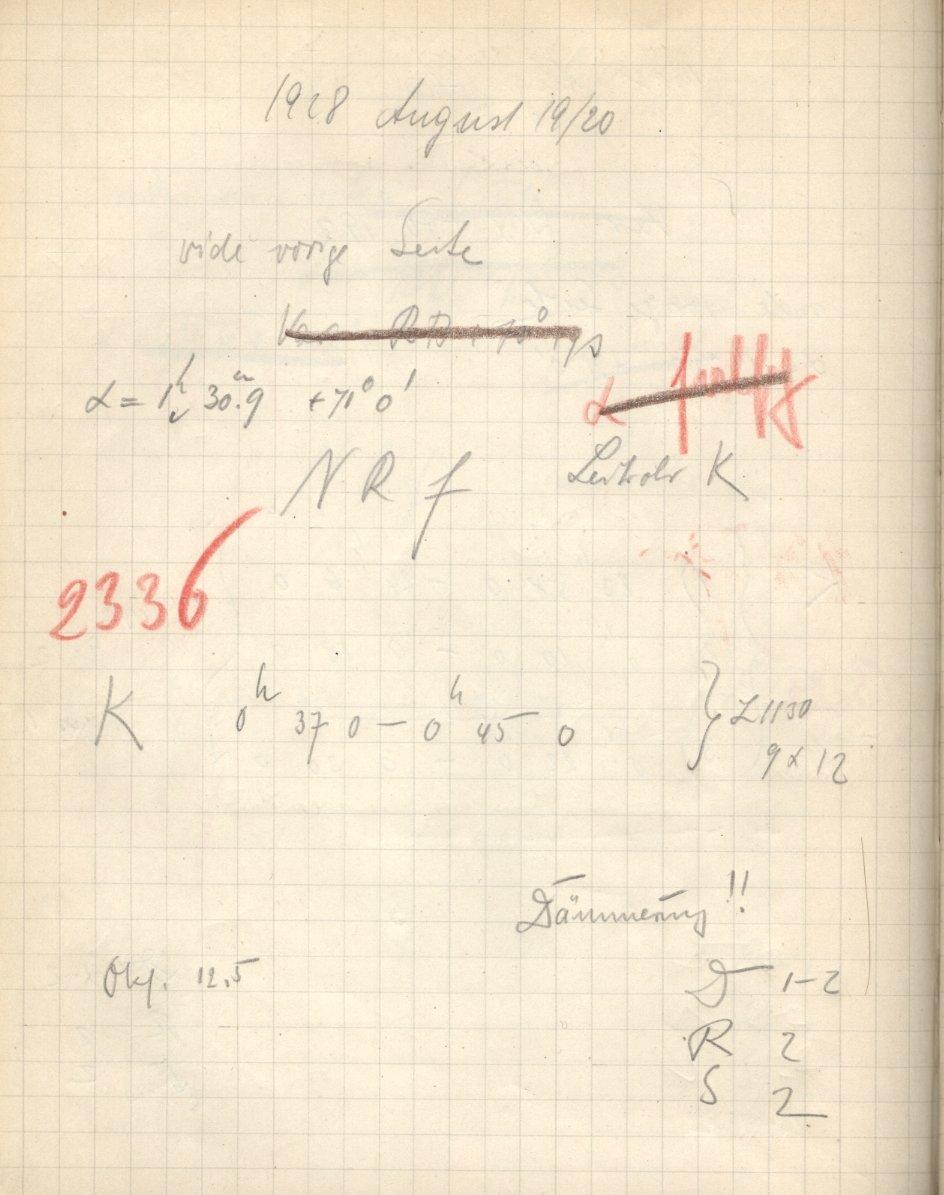 1928 August 19/20
vide vorige Seite
α = 1h 30m.9 +71° 0'
α
N R f Leitrohr K
2336
K 0h 37 0 – 0h 45 0 } Z 1130
9 x 12
Dämmerung !!
Okl. 12.5
D 1–2
R 2
S 2